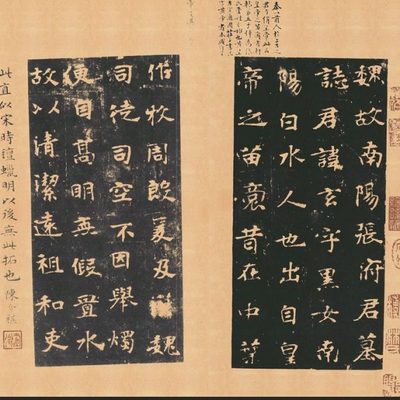 魏故南陽張府君墓
誌君諱玄字黑女南
陽白水人也出自皇
帝之苗裔昔在中葉
作牧周殷爰及漢魏
司徒司空不因舉燭
便自高明无假置水
故以清潔遠祖和吏
此直似宋時氊蠟明以後無此拓也